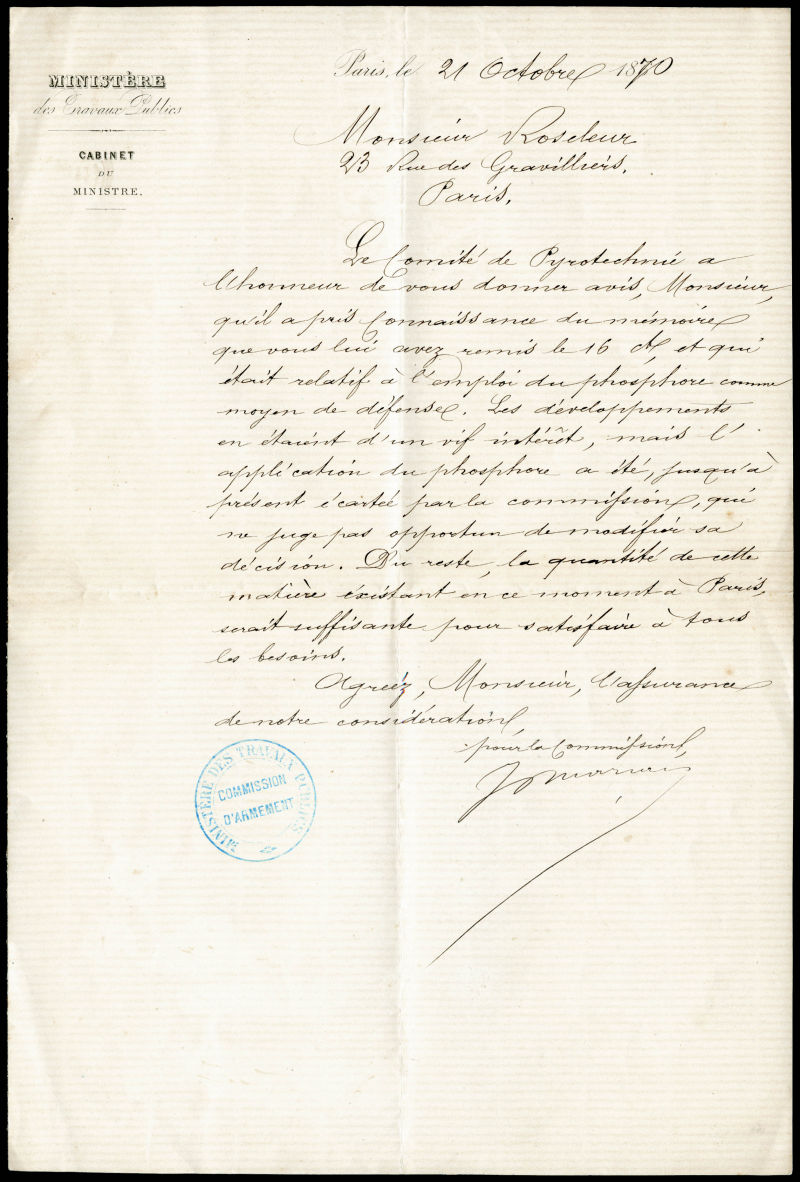 MINISTÈRE
des Travaux Publics
CABINET
DU
MINISTRE.
Paris, le 21 Octobre 1870
Monsieur Roseleur
23 Rue des Gravilliers.
Paris.
Le Comité de Pyrotechnie a
l'honneur de vous donner avis, Monsieur,
qu'il a pris connaissance du mémoire
que vous lui avez remis le 16 ct, et qui
était relatif à l'emploi du phosphore comme
moyen de défense. Les développements
en étaient d'un vif intérêt, mais l'
application du phosphore a été, jusqu'à
présent écartée par la commission, qui
ne juge pas opportun de modifier sa
décision. Du reste, la quantité de cette
matière éxistant en ce moment à Paris,
serait suffisante pour satisfaire à tous
les besoins.
Agréez, Monsieur, l'assurance
de notre considération,
pour la Commission,
MINISTÈRE DES TRAVAUX PUBLICS
COMMISSION
D'ARMEMENT